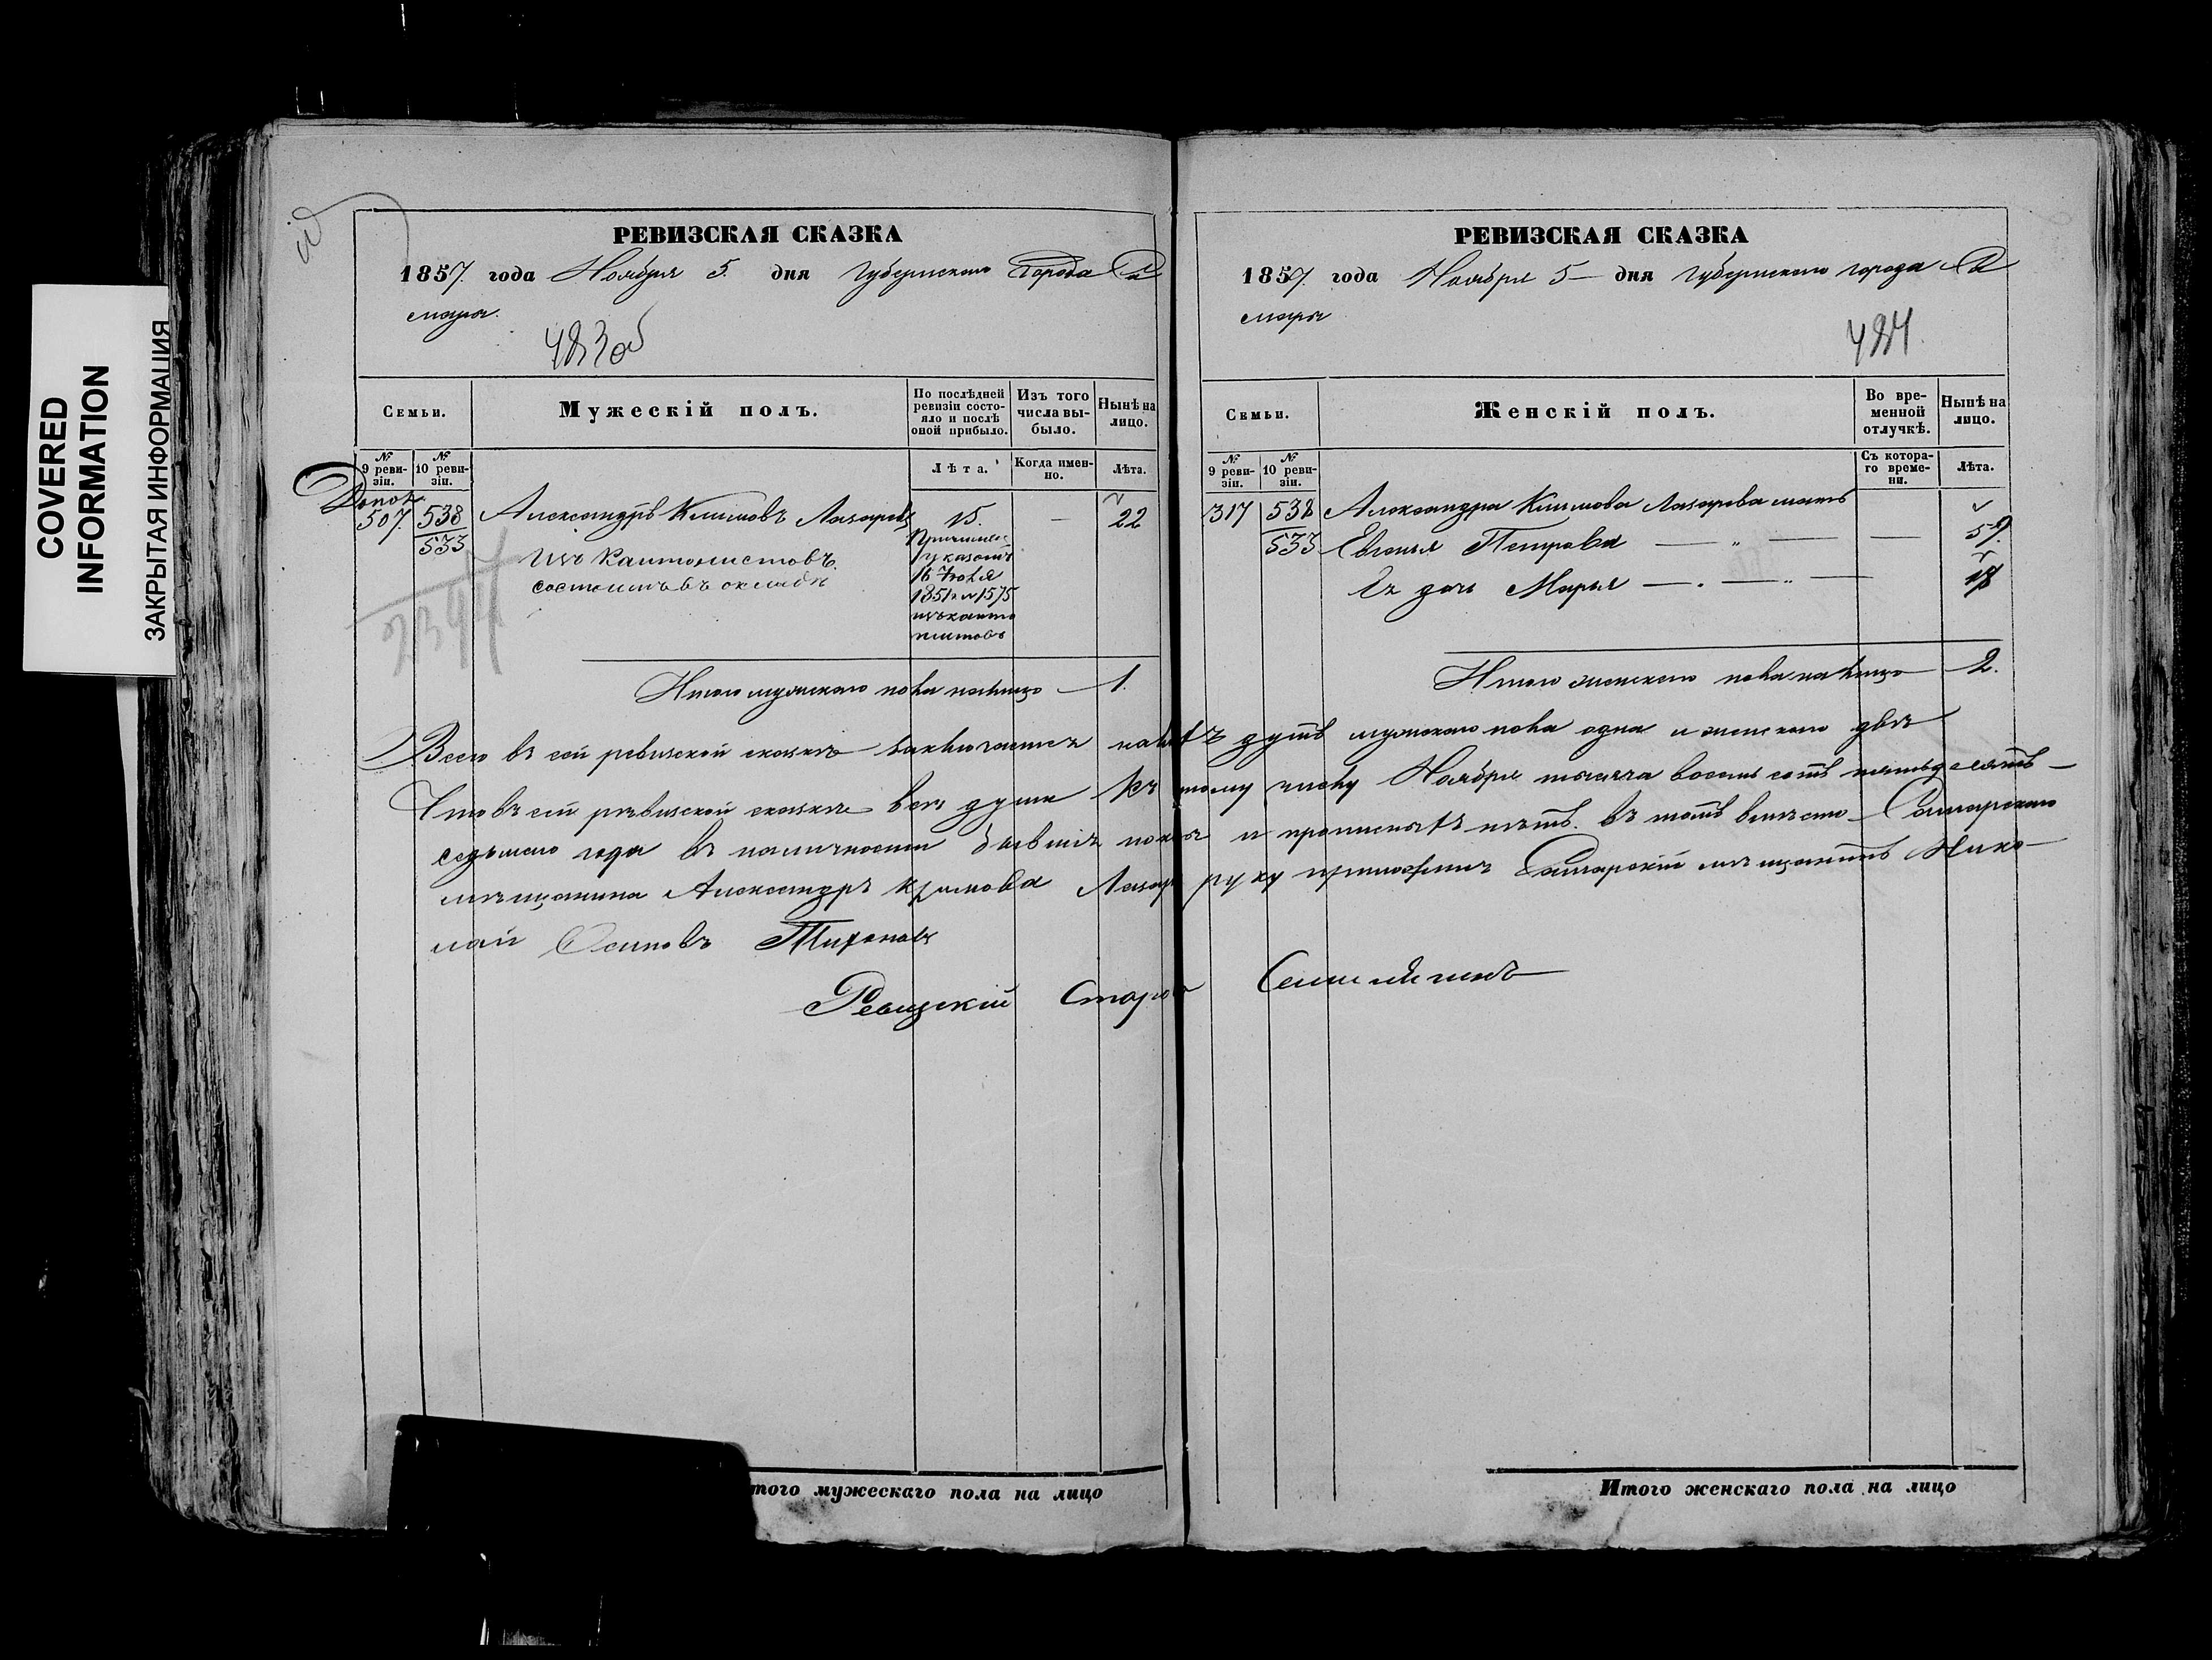 COVERED
INFORMATION
ЗАКРЫТАЯ ИНФОРМАЦИЯ
РЕВИЗСКАЯ СКАЗКА
1857. года Ноября 5. дня Губернскаго Города Са
мары.
483об
Семьи.
Мужескій полъ.
По послѣдней ревизіи состояло и послѣ оной прибыло.
Изъ того числа выбыло.
Нынѣ на лицо.
№ 9 ревизіи.
№ 10 ревизіи.
Лѣта.
Когда именно.
Лѣта.
Допол.
507. 538 Александръ Климовъ Лазаревъ 15. — 22
533 изъ Кантонистовъ
состоитъ въ окладѣ
Причислен
указомъ
16 Іюля
1851 г № 1575
изъ канто
нистовъ
2394
Итого мужскаго пола налицо — 1.
РЕВИЗСКАЯ СКАЗКА
1857. года Ноября 5 — дня Губернскаго города Са
мары
484.
Семьи.
Женскій полъ.
Во временной отлучкѣ.
Нынѣ на лицо.
№ 9 ревизіи.
№ 10 ревизіи.
Съ котораго времени.
Лѣта.
317 538 Александра Климова Лазарева мать
533 Евгенья Петрова — " — — 59.
Ея дочь Марья — " — " — 18
Итого женскаго пола налицо — 2.
Всего въ сей ревизской сказкѣ заключается душъ мужскаго пола одна и женскаго двѣ
Что въ сей ревизской сказкѣ всѣ души къ тому числу Ноября тысяча восемь сотъ пятьдесятъ —
седьмаго года въ наличности бывшія и прописныхъ нѣтъ. въ томъ вмѣсто Самарскаго
мѣщанина Александръ Климова Лазар руку приложилъ Самарскій мѣщанинъ Нико—
лай Осиповъ Тихоновъ
Ревизскій Старо
Итого мужескаго пола на лицо
Итого женскаго пола на лицо